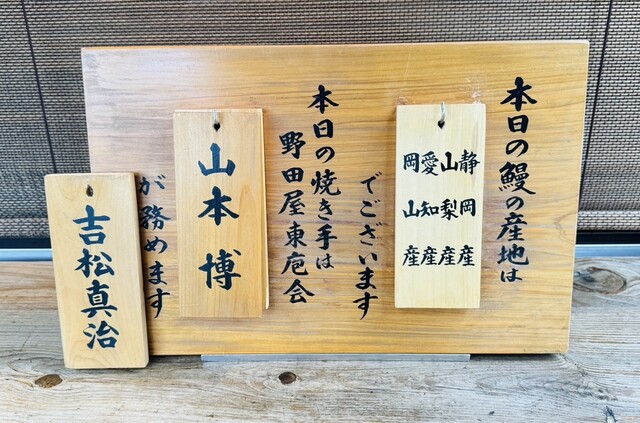 本日の鰻の産地は
静岡産
山梨産
愛知産
岡山産
でございます
本日の焼き手は
野田屋東庖会
山本博
が務めます
吉松真治